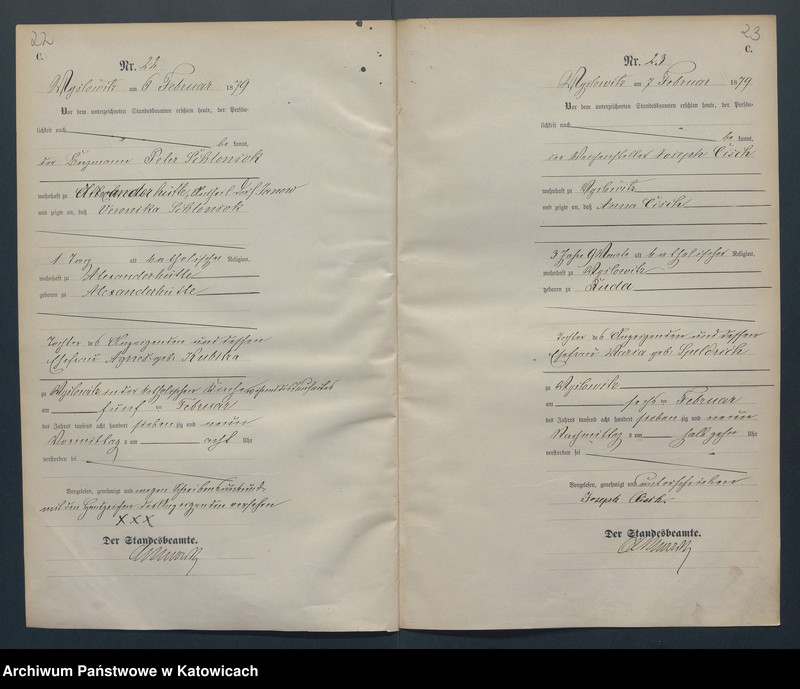 22
C.
Nr. 22
Myslowitz am 6 Februar 1879
Vor dem unterzeichneten Standesbeamten erschien heute, der Persön-
lichkeit nach
be kannt,
der Bergmann Peter
wohnhaft zu Alexanderhütte, Antheil Dorf Janow
und zeigte an, daß Veronika
1 Tag alt katholischer Religion,
wohnhaft zu Alexanderhütte
geboren zu Alexanderhütte
Tochter des Anzeigenden und dessen
Ehefrau Agnes geb. Kubitza
zu Myslowitz in der katholischen Kirche während der Taufactes
am fünf ten Februar
des Jahres tausend acht hundert sieben zig und neun
Vormittag s um acht Uhr
verstorben sei
Vorgelesen, genehmigt und wegen Schreibensunkunde
mit den Handzeichen des Anzeigenden versehen
XXX
Der Standesbeamte.
23
C.
Nr. 23
Myslowitz am 7 Februar 1879
Vor dem unterzeichneten Standesbeamten erschien heute, der Persön-
lichkeit nach
be kannt,
der Weichensteller Joseph Cisek
wohnhaft zu Myslowitz
und zeigte an, daß Anna Cisek
3 Jahr 9 Monate alt katholischer Religion,
wohnhaft zu Myslowitz
geboren zu Ruda
Tochter des Anzeigenden und dessen
Ehefrau Maria geb.
zu Myslowitz
am sechs ten Februar
des Jahres tausend acht hundert sieben zig und neun
Nachmittag s um halb zehn Uhr
verstorben sei
Vorgelesen, genehmigt und unterschrieben
Joseph Cisek.
Der Standesbeamte.
Archiwum Państwowe w Katowicach